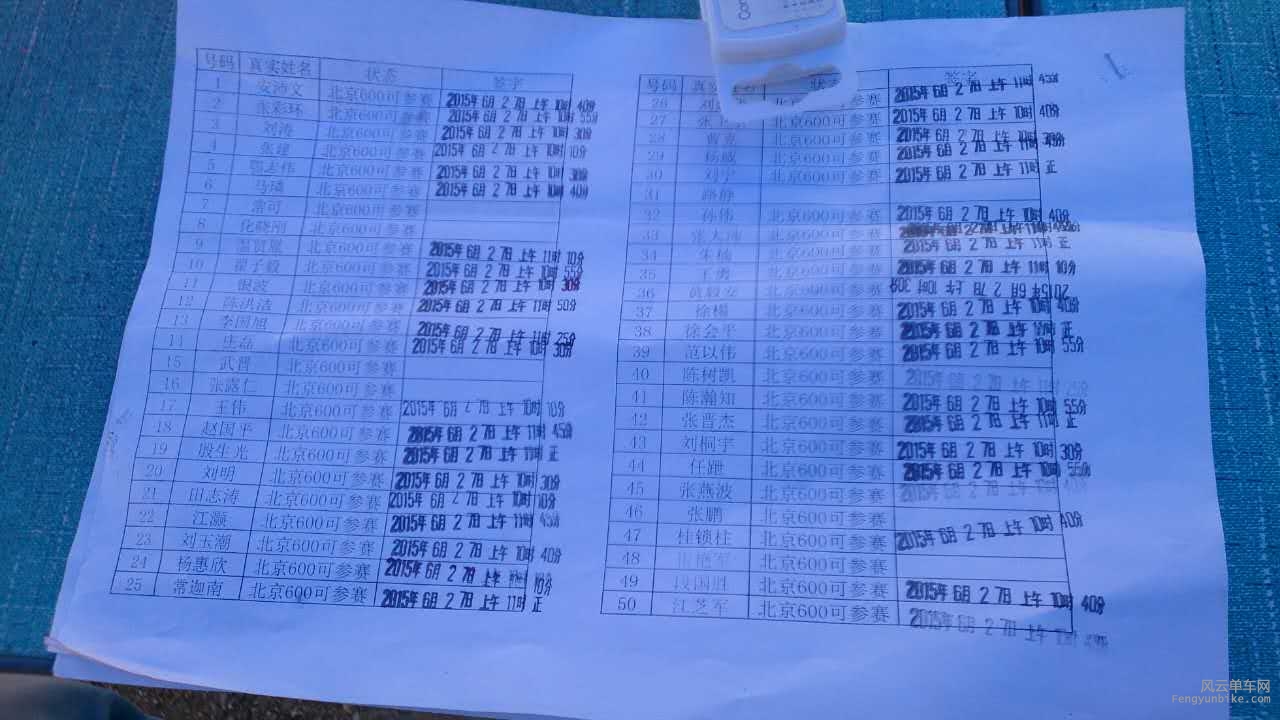 号码 真实姓名 状态 签字
1 安沛文 北京600可参赛 2015年6月27日上午10时40分
2 张彩环 北京600可参赛 2015年6月27日上午10时55分
3 刘涛 北京600可参赛 2015年6月27日上午10时30分
4 张建 北京600可参赛 2015年6月27日上午10时10分
5 鄂志伟 北京600可参赛 2015年6月27日上午10时30分
6 马璘 北京600可参赛 2015年6月27日上午10时40分
7 常可 北京600可参赛
8 北京600可参赛
9 温贤慰 北京600可参赛 2015年6月27日上午11时10分
10 翟子毅 北京600可参赛 2015年6月27日上午10时55分
11 银波 北京600可参赛 2015年6月27日上午10时30分
12 陈洪洁 北京600可参赛 2015年6月27日上午11时50分
13 李国旭 北京600可参赛 2015年6月27日上午11时25分
14 庄磊 北京600可参赛 2015年6月27日上午10时30分
15 武晋 北京600可参赛
16 张露仁 北京600可参赛
17 王伟 北京600可参赛 2015年6月27日上午10时10分
18 北京600可参赛 2015年6月27日上午11时45分
19 殷华光 北京600可参赛 2015年6月27日上午11时正
20 刘明 北京600可参赛 2015年6月27日上午10时30分
21 田志涛 北京600可参赛 2015年6月27日上午10时
22 江灏 北京600可参赛 2015年6月27日上午11时45分
23 刘玉潮 北京600可参赛 2015年6月27日上午10时40分
24 杨惠欣 北京600可参赛 2015年6月27日上午
25 常迦南 北京600可参赛 2015年6月27日上午11时正
号码 签字
26 可参赛 2015年6月27日上午11时45分
27 北京600可参赛 2015年6月27日上午10时40分
28 曹亮 北京600可参赛 2015年6月27日上午10时30分
29 杨威 北京600可参赛 2015年6月27日上午11时45分
30 刘宁 北京600可参赛 2015年6月27日上午11时正
31 路静 北京600可参赛
32 孙伟 北京600可参赛 2015年6月27日上午10时40分
33 张大伟 北京600可参赛
34 朱楠 北京600可参赛 2015年6月27日上午11时正
35 王勇 北京600可参赛 2015年6月27日上午11时10分
36 黄毅安 北京600可参赛 2015年6月27日上午10时30分
37 徐楊 北京600可参赛 2015年6月27日上午10时40分
38 徐会平 北京600可参赛 2015年6月27日上午11时正
39 范以伟 北京600可参赛 2015年6月27日上午10时55分
40 陈树凯 北京600可参赛 2015年6月27日上午11时25分
41 陈瀚知 北京600可参赛 2015年6月27日上午10时55分
42 张晋杰 北京600可参赛 2015年6月27日上午11时正
43 刘桐宇 北京600可参赛 2015年6月27日上午10时30分
44 任跐 北京600可参赛 2015年6月27日上午10时55分
45 张燕波 北京600可参赛
46 张鹏 北京600可参赛
47 桂锁柱 北京600可参赛 2015年6月27日上午10时40分
48 北京600可参赛
49 段国胜 北京600可参赛 2015年6月27日上午10时40分
50 江芝军 北京600可参赛 2015年6月27日上午
风云单车网
Fengyunbike.com